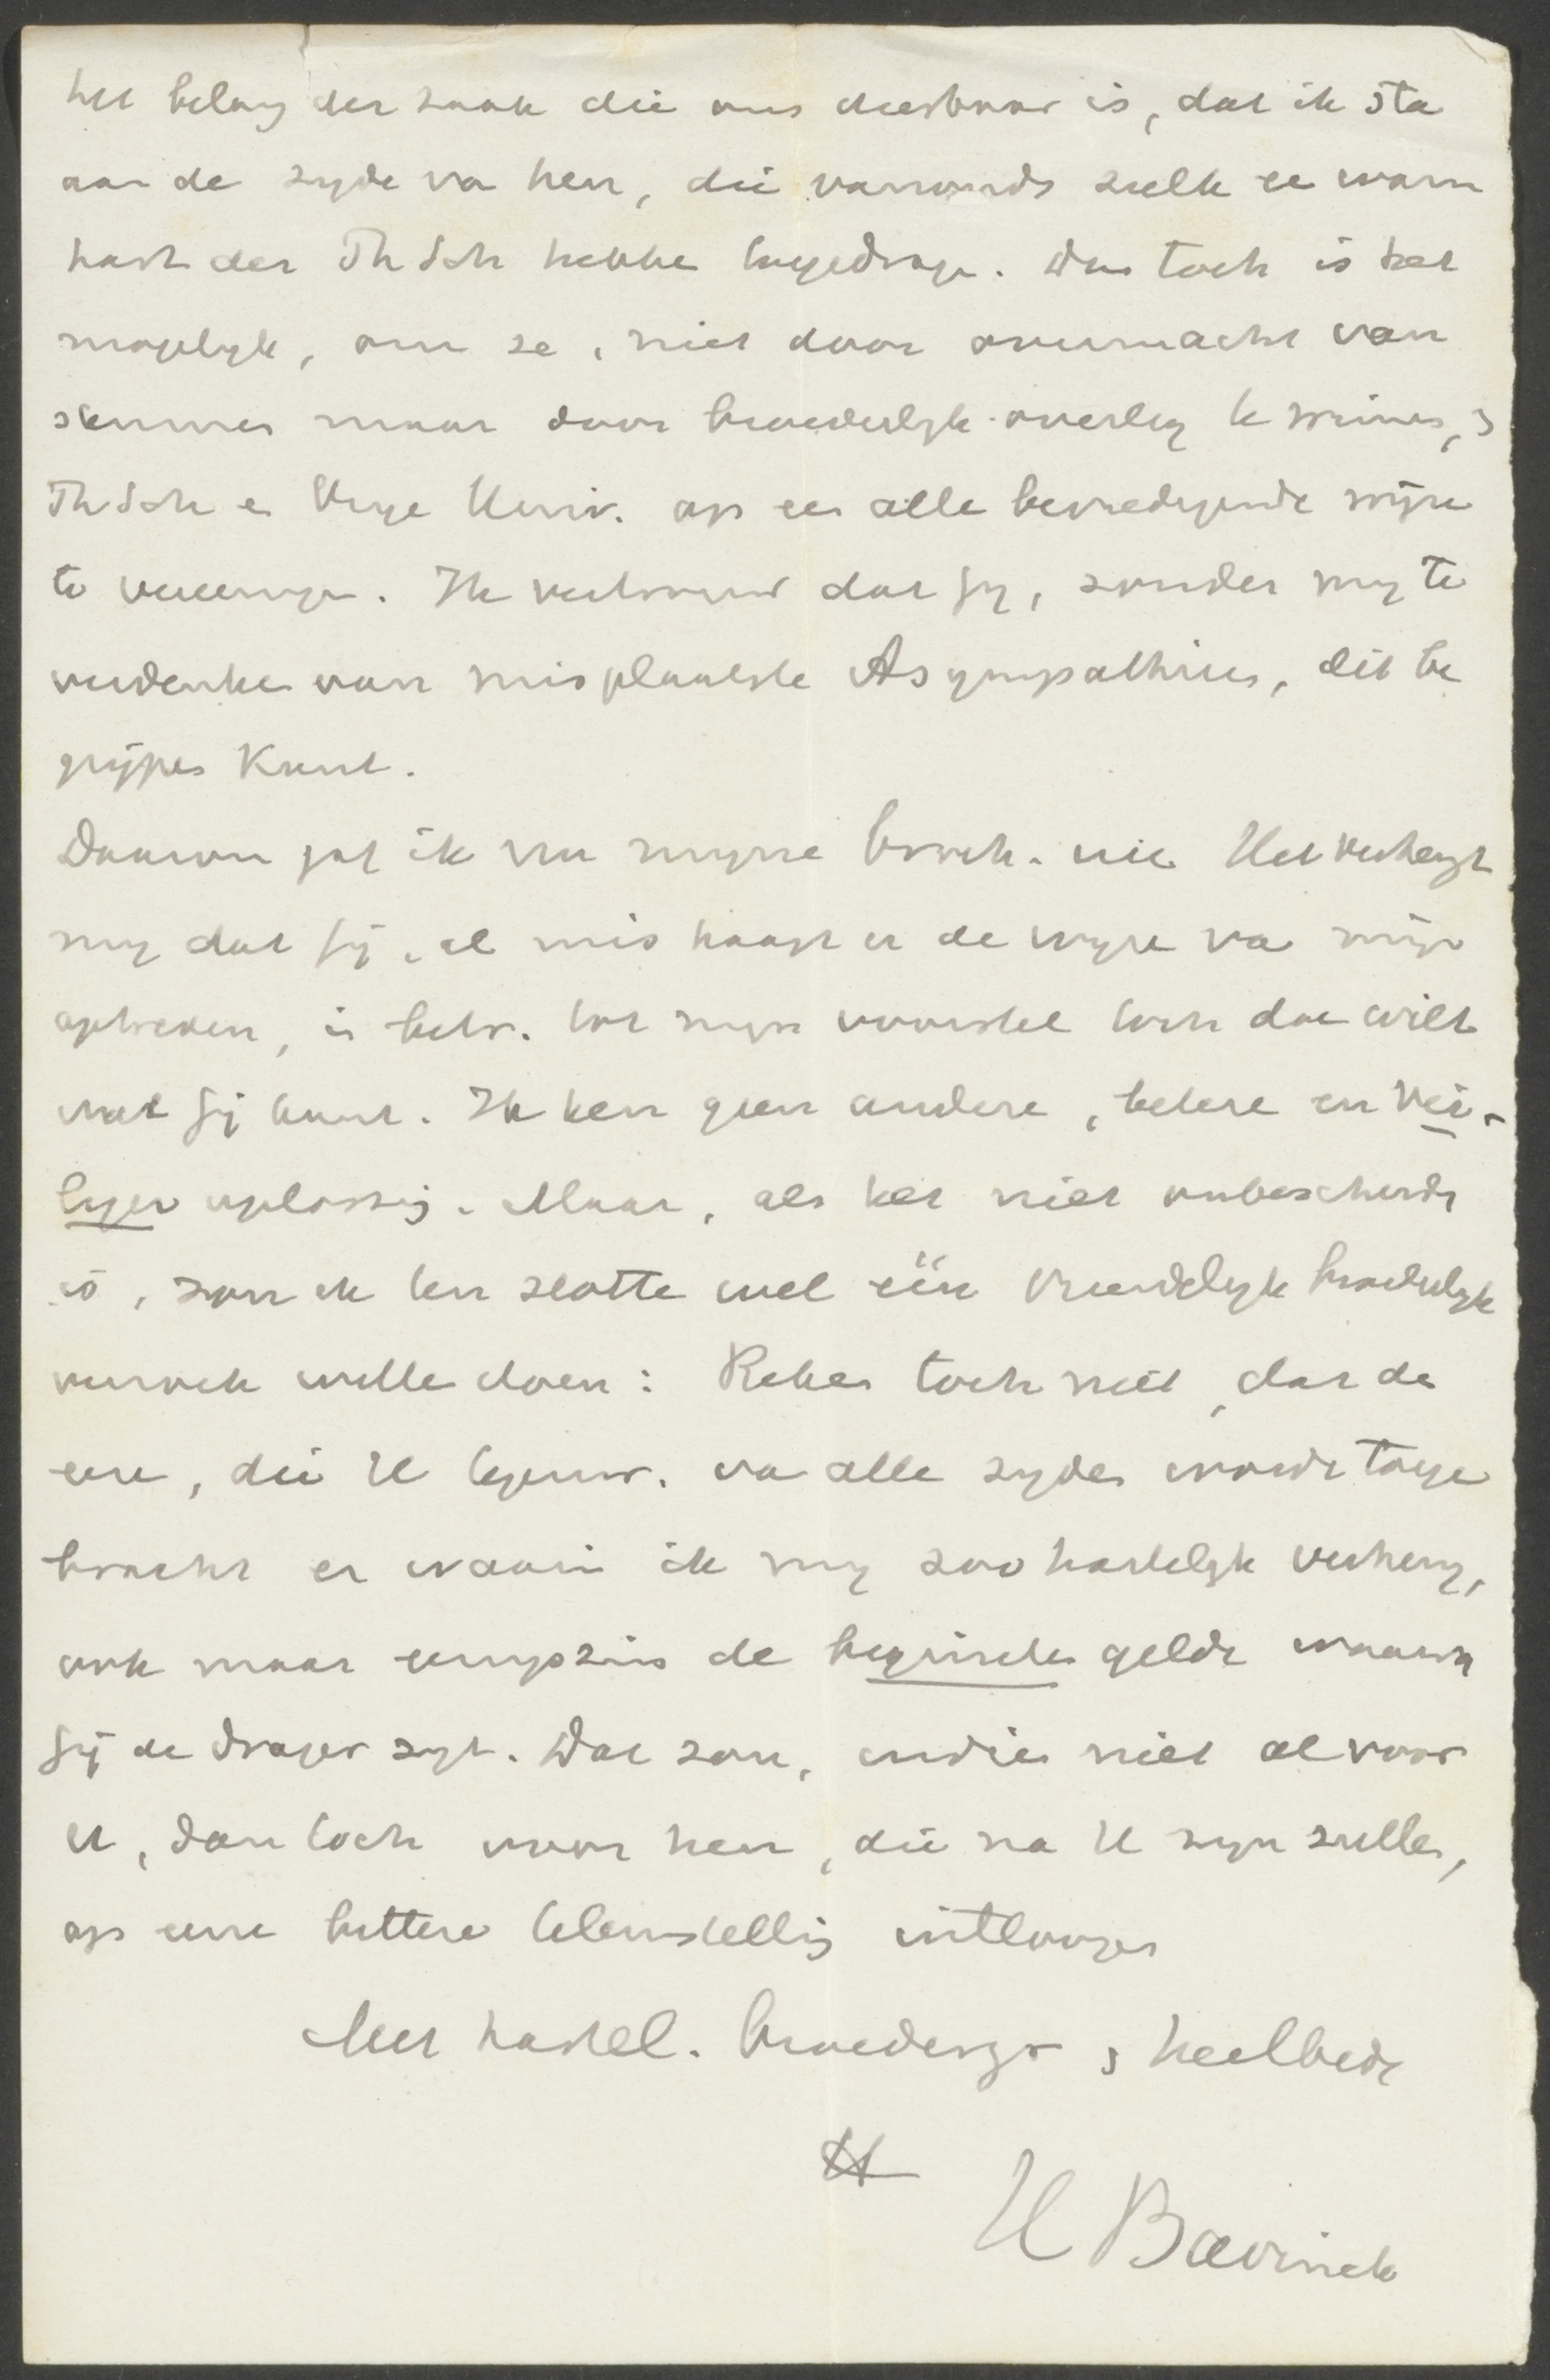 het belang der zaak die ons dierbaar is, dat ik sta
aan de zyde va hen, die vanouds zulk ee warm
hart der Th Sch hebbe toegedrage. Dan toch is het
mogelyk, om ze, niet door overmacht van
stemmen maar door broederlyk overleg te winnen, &
Th Sch e Vrye Univ. op een alle bevredigende wijze
te vereenige. Ik vertrouw dat gy, zonder my te
verdenken van misplaatste A sympathien, dit be
grijpen kunt.
Daarom gaf ik nu myne broch. uit. Het verheugt
my dat gij, al mishaagt u de wyze va mijn
optreden, in betr. tot myn voorstel toch doe wilt
wat gij kunt. Ik ken geen andere, betere en vei-
liger oplossing. Maar, als het niet onbescheide
is, zou ik ten slotte wel één vriendelyk broederlyk
verzoek wille doen: Reken toch niet, dat de
eere, die U tegenw. va alle zyden wordt toege
bracht en waarin ik my zoo hartelyk verheug,
ook maar eenigszins de beginselen geldt waarva
gij de drager zyt. Dat zou, indien niet al voor
U, dan toch voor hen, die na U zyn zullen,
op eene bittere teleurstelling uitloopen
Met hartel. broedergr & heelbede
H Bavinck